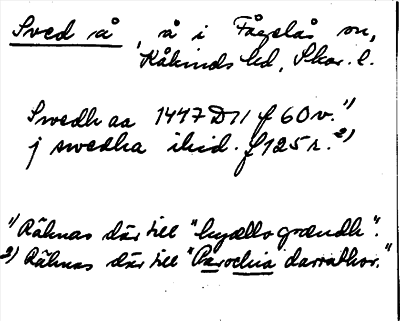 Sved å, å i Fågelås sn,
Kåkinds hd, Skar. l.
Swedh aa 1447 D11 f 60v. 1)
j swedha ibid. f 125 r. 2)
1) Räknas där till "hyællo grændh".
2) Räknas där till "Parochia darrathor."